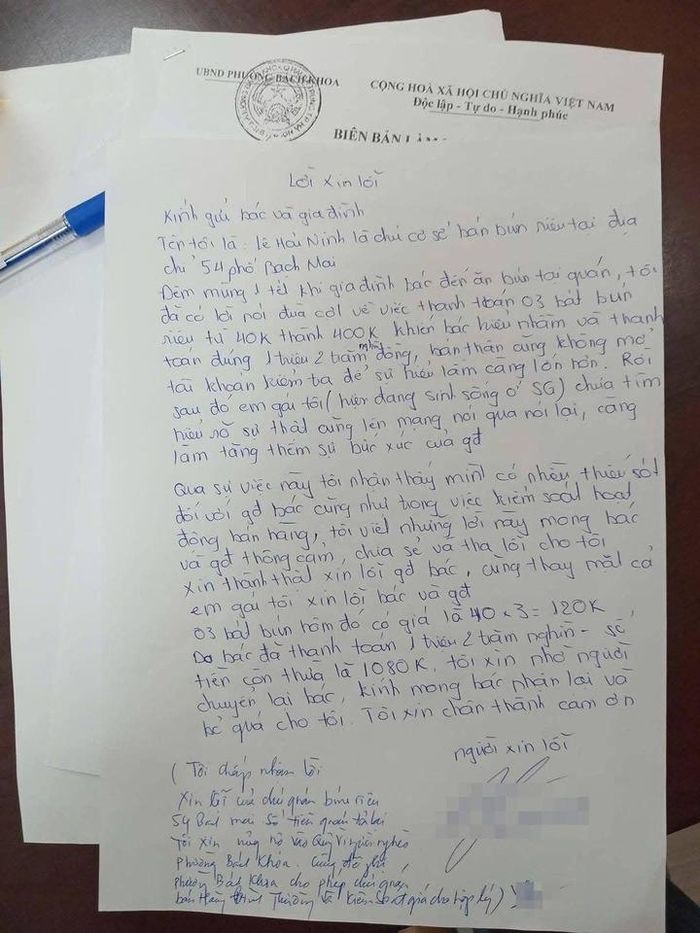 UBND PHƯỜNG BÁCH KHOA
CỘNG HOÀ XÃ HỘI CHỦ NGHĨA VIỆT NAM
Độc lập - Tự do - Hạnh phúc
BIÊN BẢN LÀM
Lời xin lỗi
Kính gửi bác và gia đình
Tên tôi là: Lê Hải Ninh là chủ cơ sở bán bún riêu tại địa
chỉ 54 phố Bạch Mai
Đêm mùng 1 tết khi gia đình bác đến ăn bún tại quán, tôi
đã có lời nói đùa cợt về việc thanh toán 03 bát bún
riêu từ 40K thành 400K khiến bác hiểu nhầm và thanh
toán đúng 1 triệu 2 trăm nghìn đồng, bản thân cũng không mở
tài khoản kiểm tra để sự hiểu lầm càng lớn hơn. Rồi
sau đó em gái tôi (hiện đang sinh sống ở SG) chưa tìm
hiểu rõ sự thật cũng lên mạng nói qua nói lại, càng
làm tăng thêm sự bức xúc của gđ
Qua sự việc này tôi nhận thấy mình có nhiều thiếu sót
đối với gđ bác cũng như trong việc kiểm soát hoạt
động bán hàng, tôi viết những lời này mong bác
và gđ thông cảm, chia sẻ và tha lỗi cho tôi
xin thành thật xin lỗi gđ bác, cũng thay mặt cả
em gái tôi xin lỗi bác và gđ
03 bát bún hôm đó có giá là 40 x 3 = 120K
Do bác đã thanh toán 1 triệu 2 trăm nghìn - số
tiền còn thừa là 1080K. tôi xin nhờ người
chuyển lại bác, kính mong bác nhận lại và
bỏ quá cho tôi. Tôi xin chân thành cảm ơn
người xin lỗi
( Tôi chấp nhận lời
xin lỗi của chủ quán bún riêu
54 Bạch mai số tiền quán trả lại
Tôi xin ủng hộ vào Quỹ Vì người nghèo
phường Bách Khoa. Cũng đề nghị
phường Bách Khoa cho phép chủ quán
bán hàng bình thường và kiểm soát giá cho hợp lý)